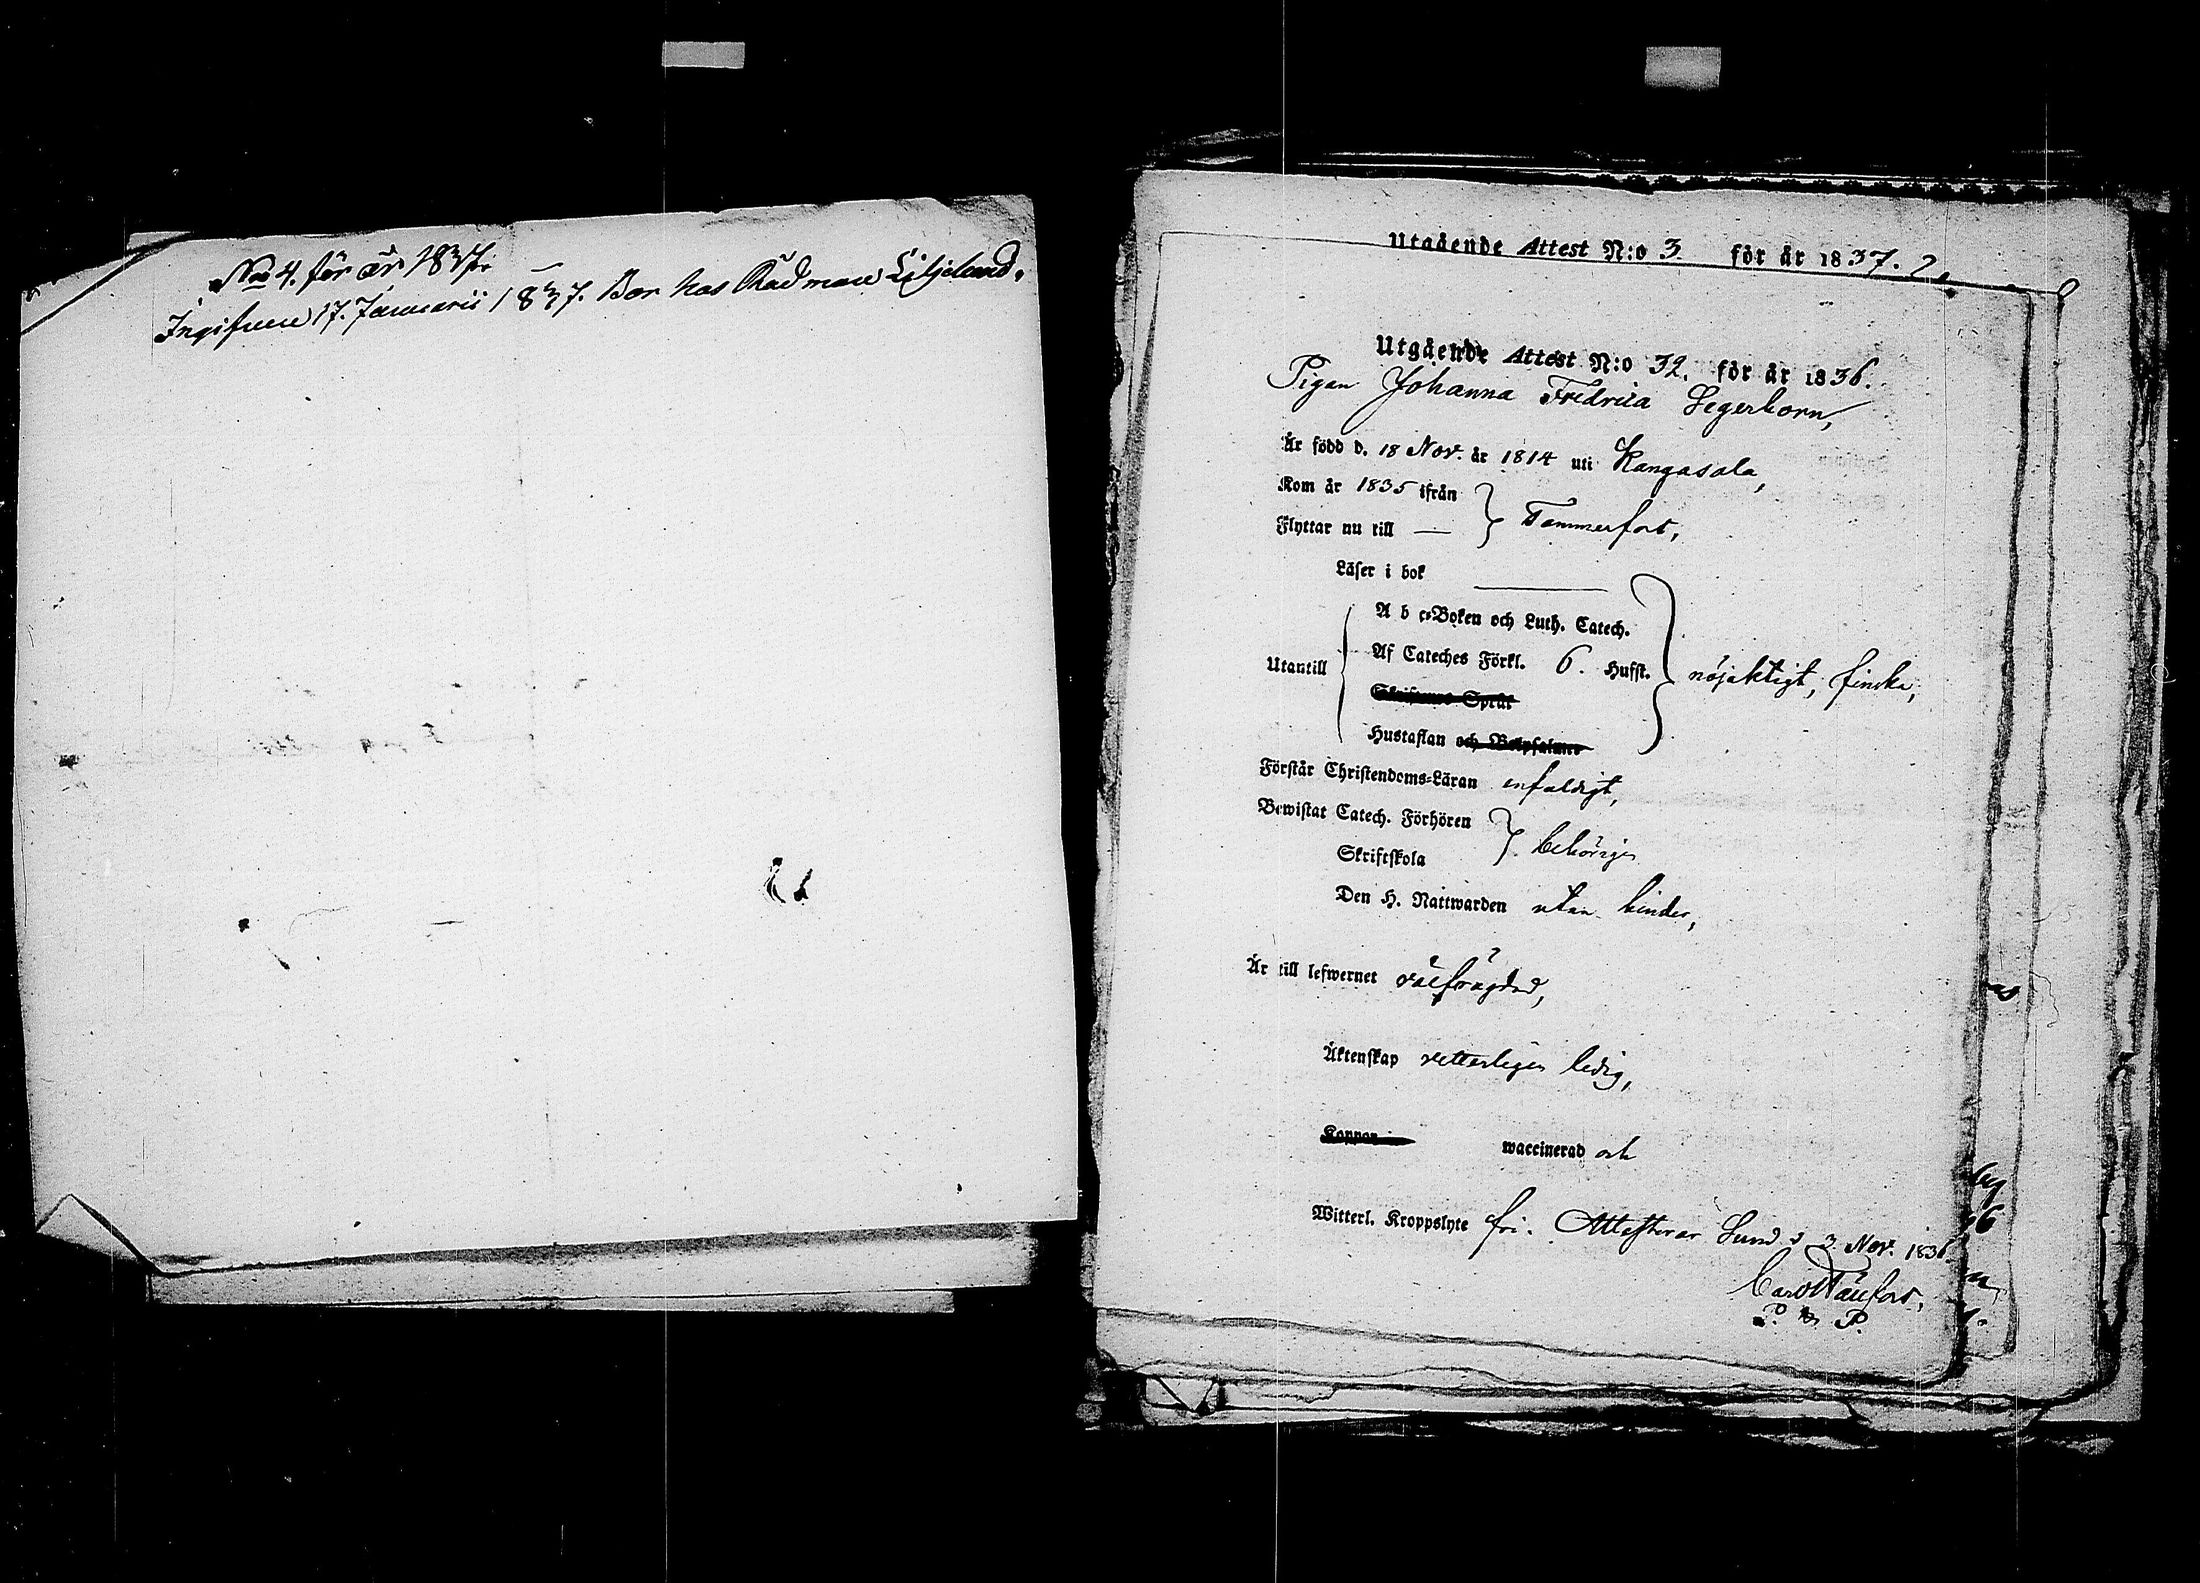 No 4. för år 1837.
Ingifven 17. Januarii 1837. Bor hos Rådman Liljelund.
Utgående Attest N:o 3 för år 1837.
Utgående Attest N:o 32. för år 1836.
Pigan Johanna Fredrica Segerkorn,
Är född d. 18 Nov. år 1814 uti Kangasala,
Kom år 1835 ifrån
Flyttar nu till — } Tammerfors,
Läser i bok
A b c-Boken och Luth. Catech.
Utantill Af Cateches Förkl. 6. Hufst. nöjaktigt, finska,
Skriftenes Språk
Hustaflan och Botpsalmer
Förstår Christendoms-Läran enfaldigt,
Bewistat Catech. Förhören
Skriftskola } behörigen
Den H. Nattwarden utan hinder,
Är till lefwernet välfrägdad,
Äktenskap vetterligen ledig,
Koppor waccinerad och
Witterl. Kroppslyte fri. Attesterar Lund d 3 Nov. 1836.
P. & P.